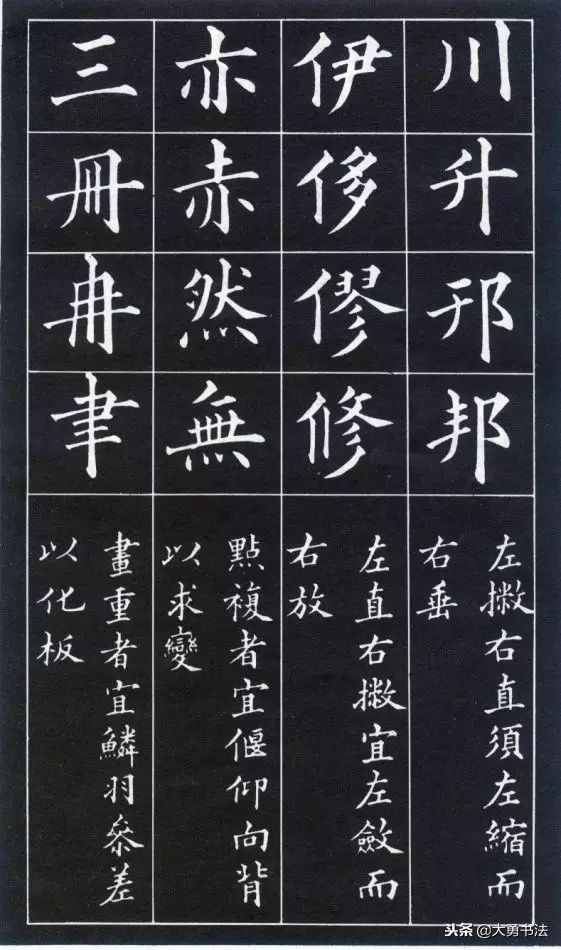 川
升
邘
邦
左撇右直須左縮而
右垂
伊
侈
僇
修
左直右撇宜左斂而
右放
亦
赤
然
無
點複者宜偃仰向背
以求變
三
冊
冉
聿
畫重者宜鱗羽叅差
以化板
头条 @大勇书法